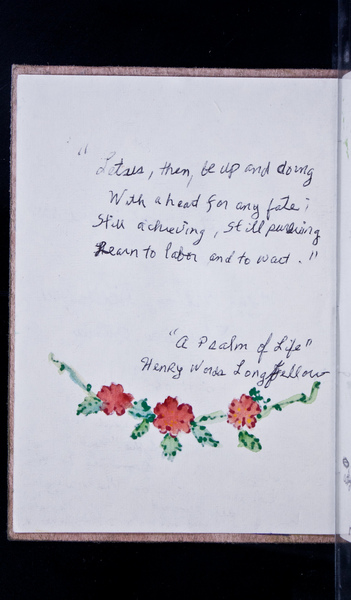 "Let us, then, be up and doing
With a head for any fate;
Still achieving, still pursuing
Learn to labor and to wait."
"A Psalm of Life"
Henry Words Longfellow